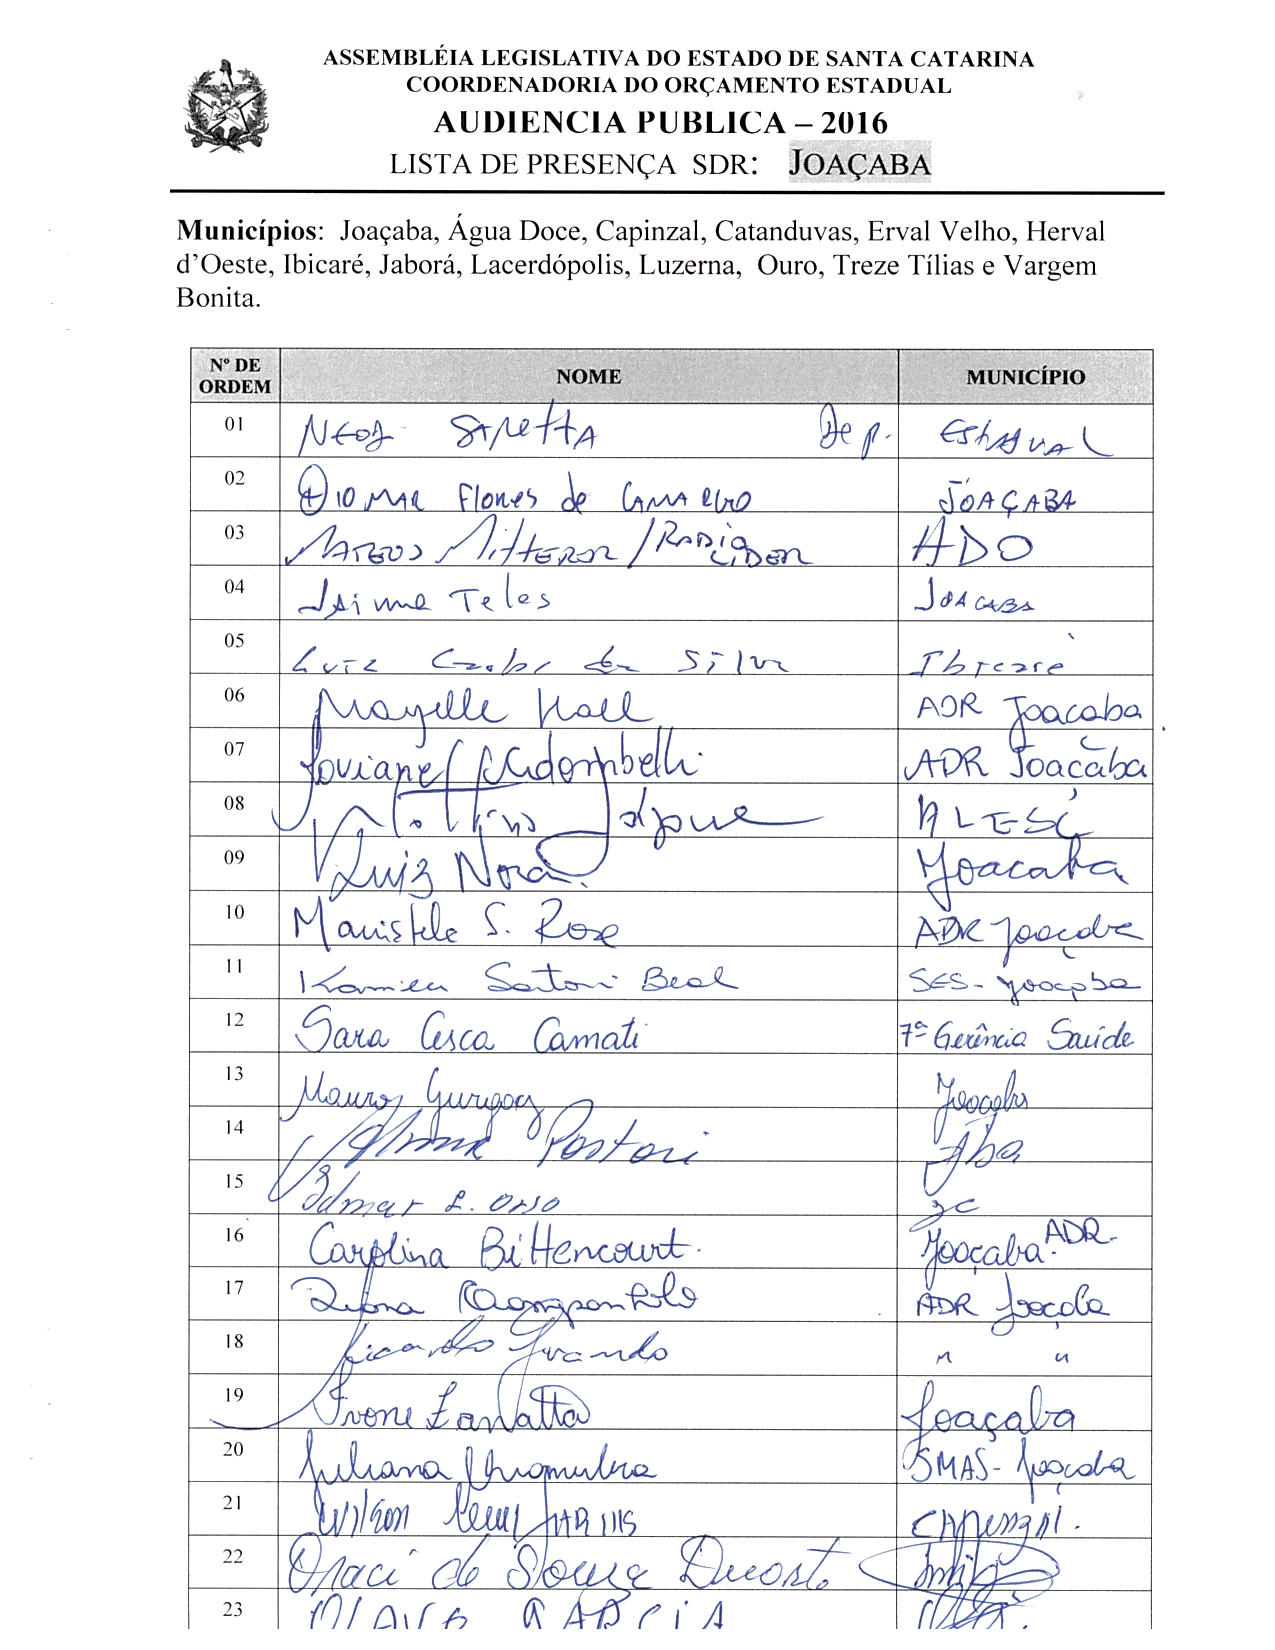 ASSEMBLÉIA LEGISLATIVA DO ESTADO DE SANTA CATARINA
COORDENADORIA DO ORÇAMENTO ESTADUAL
AUDIENCIA PUBLICA – 2016
LISTA DE PRESENÇA SDR: JOAÇABA
Municípios: Joaçaba, Água Doce, Capinzal, Catanduvas, Erval Velho, Herval
d’Oeste, Ibicaré, Jaborá, Lacerdópolis, Luzerna, Ouro, Treze Tílias e Vargem
Bonita.
Nº DE ORDEM NOME MUNICÍPIO
01 Dep. Estadual
02 Flores de Camargo JOAÇABA
03 Mateus /Radio Lider ADO
04 Jaime Teles Joacaba
05 Luiz da Silva Ibicaré
06 ADR Joaçaba
07 ADR Joaçaba
08 ALESC
09 Luiz Nora Joacaba
10 S. Rose ADR Joaçaba
11 Sartori Beal SES - Joaçaba
12 Sara Cesca Camati 7ª Gerência Saúde
13 Mauro Joaçaba
14 Pastori Jba
15 Idmar L. Orso
16 Carolina Bittencourt. Joaçaba. ADR.
17 ADR Joaçaba
18 Ricardo " "
19 Ivone Zanatta Joaçaba
20 Juliana SMAS- Joaçaba
21 Wilson Farias Capinzal.
22 de Souza
23 Olavo Garcia